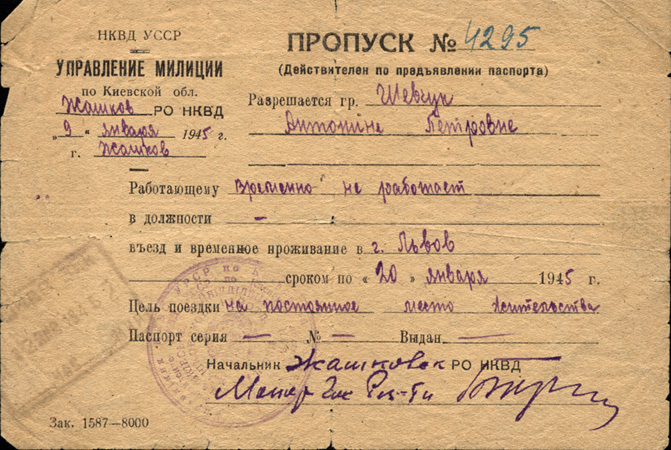 НКВД УССР
УПРАВЛЕНИЕ МИЛИЦИИ
по Киевской обл.
Жашков РО НКВД
„9“ января 1945 г.
г. Жашков
ПРОПУСК № 4295
(Действителен по предъявлении паспорта)
Разрешается гр. Шевчук
Антонине Петровне
Работающему временно не работает
в должности —
въезд и временное проживание в г. Львов
сроком по „20“ января 1945 г.
Цель поездки на постоянное место жительства
Паспорт серия — № — Выдан —
Начальник Жашковск РО НКВД
Зак. 1587—8000